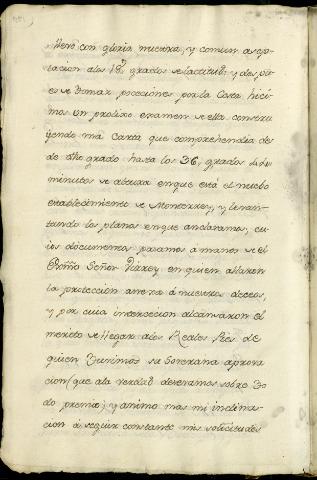 llenó con gloria nuestra, y comun asep-
tacion alos 18 grados de lactitud: y despu-
es de tomar poceciones por la Costa, hici-
mos un prolixo examen de ella constru
yendo una Carta que comprehendia de
de dho grado hasta los 36, grados
minutos de altura en que está el nuebo
establecimiento de Monterrey, y levan-
tando los planos en que anclavamos, cu-
ios documentos pasamos á manos de el
Exmo Señor Virrey en quien allaron
la protección anexa á nuestros deceos,
y por cuia intercecion alcansaron el
merito de llegar alos Reales Pies de
quien tuvimos su Soverana aprova
cion (que ala verdad deseavamos sobre to
do premio) y animó mas mi inclina-
cion á seguir constante mis solicitudes